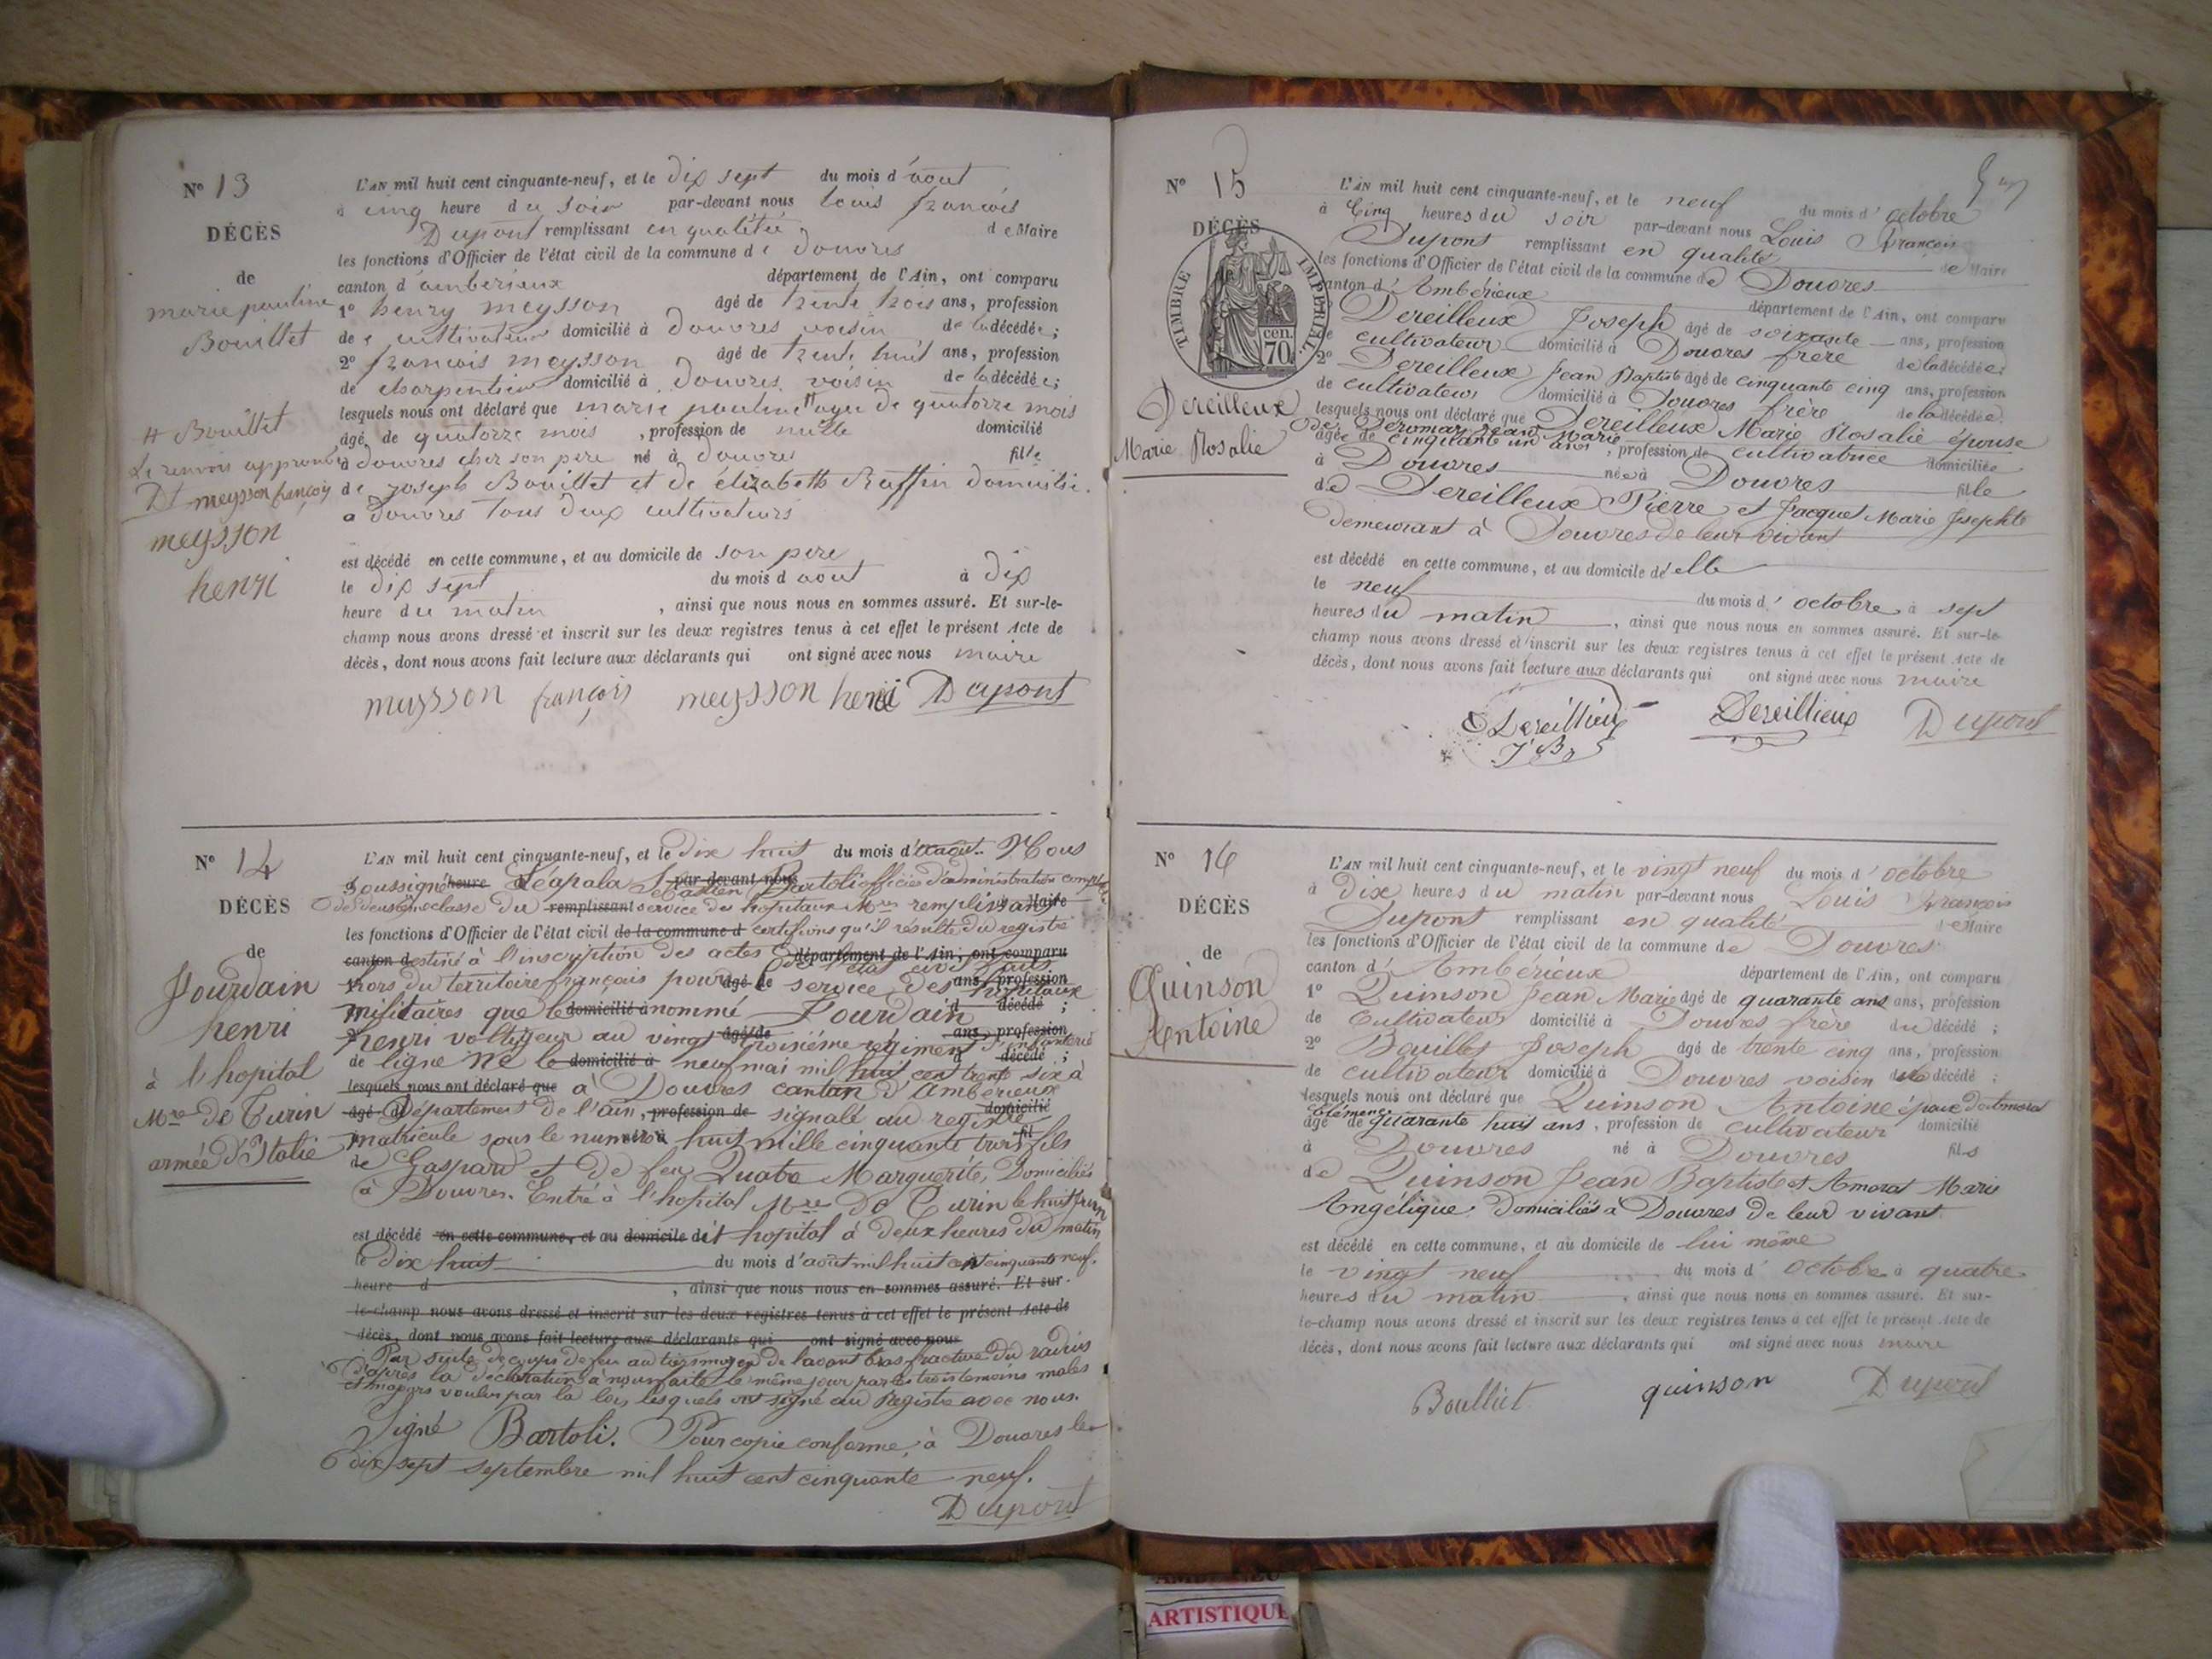 N° 13
DÉCÈS
de
marie pauline
Bouillet
# Bouillet
Le renvoi approuvé
Dt meysson françois
meysson
henri
L'AN mil huit cent cinquante-neuf, et le dix sept du mois d'aout
à cinq heure du soir par-devant nous louis françois
Dupont remplissant en qualitée de Maire
les fonctions d'Officier de l'état civil de la commune de douvres
canton d'ambérieux département de l'Ain, ont comparu
1° henry meysson âgé de trente trois ans, profession
de cultivateur domicilié à douvres voisin de la décédée;
2° francois meysson âgé de trente huit ans, profession
de charpentier domicilié à douvres voisin de la décédée;
lesquels nous ont déclaré que marie pauline # agee de quatorze mois
âgé de quatorze mois, profession de nulle domicilié
à douvres chez son pere né à douvres fille
de joseph Bouillet et de élizabeth Raffin domicilié
a douvres tous deux cultivateurs
est décédé en cette commune, et au domicile de son pere
le dix sept du mois d aout à dix
heure du matin, ainsi que nous nous en sommes assuré. Et sur-le-
champ nous avons dressé et inscrit sur les deux registres tenus à cet effet le présent Acte de
décès, dont nous avons fait lecture aux déclarants qui ont signé avec nous maire
meysson françois meysson henri Dupont
N° 14
DÉCÈS
de
Jourdain
henri
à l'hopital
Mre de Turin
armée d'Italie
L'AN mil huit cent cinquante-neuf, et le dix huit du mois d'août. Nous
Soussigné heure d par-devant nous Bartoli officier d'administration comptable
de deuxième classe du remplissant service des hopitaux Mres remplissant Maire
les fonctions d'Officier de l'état civil de la commune d certifions qu'il résulte du registre
canton destiné à l'inscription des actes de l'état civil faits département de l'Ain, ont comparu
hors du territoire français pour âgé de le service des hopitaux ans, profession
militaires que le domicilié à nommé Jourdain d décédé ;
2° henri voltigeur au vingt âgé de troisième régiment d'infanterie ans, profession
de ligne né le domicilié à neuf mai mil huit cent trente six à d décédé ;
lesquels nous ont déclaré que à Douvres canton d'Ambérieux
âgé de Département de l'ain, profession de signalé au registre domicilié
matricule sous le numéro né à huit mille cinquante trois fil fils
de Gaspard et de feu Quatre Marguerite, Domiciliés
à Douvres. Entré à l'hopital Mre de Turin le huit juin
est décédé en cette commune, et au domicile de dit hopital à deux heures du matin
le dix huit du mois d'août mil huit cent cinquante neuf.
heure d , ainsi que nous nous en sommes assuré. Et sur-
le-champ nous avons dressé et inscrit sur les deux registres tenus à cet effet le présent Acte de
décès, dont nous avons fait lecture aux déclarants qui ont signé avec nous
Par suite de coups de feu au tiers moyen de l'avant bras fracture du radius
d'après la déclaration à nous faite le même jour par les trois témoins mâles
et majeurs voulus par la loi, lesquels ont signé au Registre avec nous.
Signé Bartoli. Pour copie conforme, à Douvres le
dix sept septembre mil huit cent cinquante neuf.
Dupont
N° 15
DÉCÈS
TIMBRE IMPERIAL.
cen.
70
Dereilleux
Marie Rosalie
L'AN mil huit cent cinquante-neuf, et le neuf du mois d'octobre
à Cinq heures du soir par-devant nous Louis François
Dupont remplissant en qualité de Maire
les fonctions d'Officier de l'état civil de la commune de Douvres
canton d'Ambérieux département de l'Ain, ont comparu
1° Dereilleux Joseph âgé de soixante ans, profession
de cultivateur domicilié à Douvres frère de la décédée;
2° Dereilleux Jean Baptiste âgé de cinquante cinq ans, profession
de cultivateur domicilié à Douvres frère de la décédée
lesquels nous ont déclaré que Dereilleux Marie Rosalie épouse
de Jean Marie
âgée de cinquante un ans, profession de cultivatrice domiciliée
à Douvres née à Douvres fille
de Dereilleux Pierre et Jacquet Marie Josephte
demeurant à Douvres de leur vivant
est décédé en cette commune, et au domicile d'elle
le neuf du mois d'octobre à sept
heures du matin, ainsi que nous nous en sommes assuré. Et sur-le-
champ nous avons dressé et inscrit sur les deux registres tenus à cet effet le présent Acte de
décès, dont nous avons fait lecture aux déclarants qui ont signé avec nous maire
Dereillieux Dereillieux Dupont
N° 16
DÉCÈS
de
Quinson
Antoine
L'AN mil huit cent cinquante-neuf, et le vingt neuf du mois d'octobre
à Dix heures du matin par-devant nous Louis François
Dupont remplissant en qualité de Maire
les fonctions d'Officier de l'état civil de la commune de Douvres
canton d'Ambérieux département de l'Ain, ont comparu
1° Quinson Jean Marie âgé de quarante ans ans, profession
de Cultivateur domicilié à Douvres frère du décédé ;
2° Bouillet Joseph âgé de trente cinq ans, profession
de cultivateur domicilié à Douvres voisin du décédé ;
lesquels nous ont déclaré que Quinson Antoine époux de
Clémence
âgé de quarante huit ans, profession de cultivateur domicilié
à Douvres né à Douvres fils
de Quinson Jean Baptiste et Amorat Marie
Angélique, Domiciliés à Douvres de leur vivant
est décédé en cette commune, et au domicile de lui même
le vingt neuf du mois d'Octobre à quatre
heures du matin, ainsi que nous nous en sommes assuré. Et sur-
le-champ nous avons dressé et inscrit sur les deux registres tenus à cet effet le présent Acte de
décès, dont nous avons fait lecture aux déclarants qui ont signé avec nous maire
Boulliet quinson Dupont
ARTISTIQUE